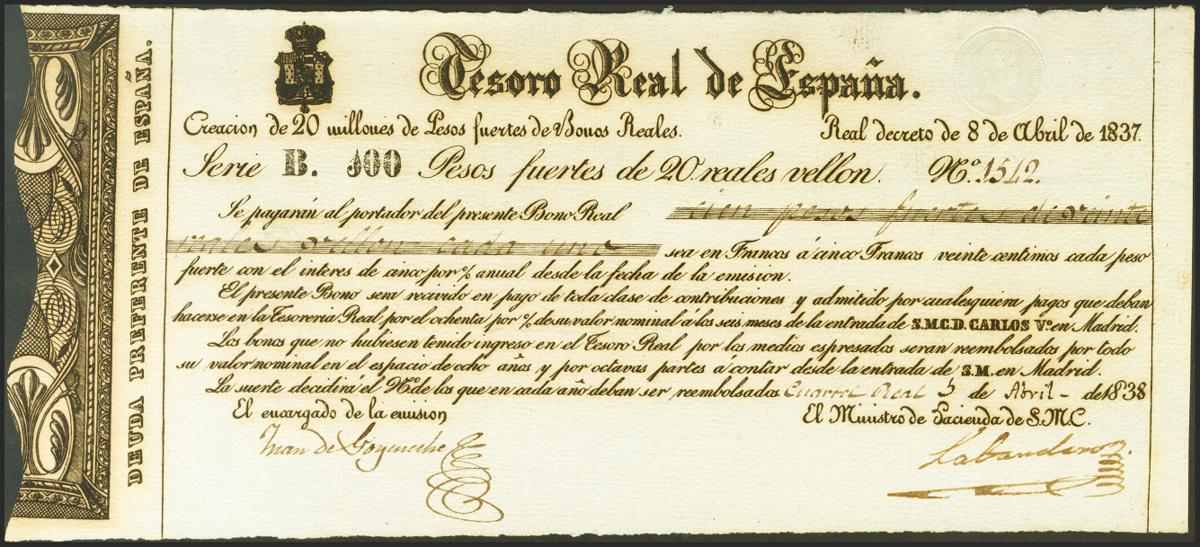 DEUDA PREFERENTE DE ESPAÑA.
Tesoro Real de España.
Creacion de 20 millones de Pesos fuertes de Bonos Reales. Real decreto de 8 de Abril de 1837.
Serie B. 100 Pesos fuertes de 20 reales vellon. Nº 1542.
Se pagarán al portador del presente Bono Real cien pesos fuertes de veinte
reales vellon cada uno sea en Francos á cinco Francos veinte centimos cada peso
fuerte con el interes de cinco por % anual desde la fecha de la emision.
El presente Bono sera recivido en pago de toda clase de contribuciones y admitido por cualesquiera pagos que deban
hacerse en la Tesoreria Real por el ochenta por % de su valor nominal á los seis meses de la entrada de S.M.C.D. CARLOS Vº. en Madrid.
Los bonos que no hubiesen tenido ingreso en el Tesoro Real por los medios espresados seran reembolsados por todo
su valor nominal en el espacio de ocho años y por octavas partes á contar desde la entrada de S.M. en Madrid.
La suerte decidirá el Nº de los que en cada año deban ser reembolsados Cuartel Real 5 de Abril - de 1838
El encargado de la emision El Ministro de Hacienda de S.M.C.
Juan de Goyeneche Labandero